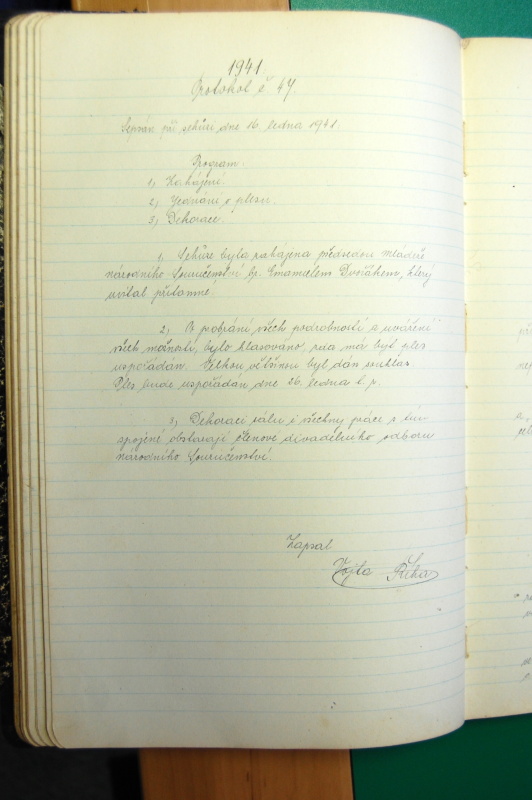 1941.
Protokol č 47.
Sepsán při schůzi dne 16. ledna 1941.
Program:
1, Zahájení.
2, Jednání o plesu.
3, Dekorace.
1, Schůze byla zahájena předsedou mládeže
národního Souručenství br. Emanuelem Dvořákem, který
uvítal přítomné.
2, O probrání všech podrobností a uvážení
všech možností, bylo hlasováno, zda má být ples
uspořádán. Velkou většinou byl dán souhlas.
Ples bude uspořádán dne 26. ledna t. r.
3, Dekoraci sálu i všechny práce s tím
spojené obstarají členové divadelního odboru
národního Souručenství.
Zapsal
Vojta Říha